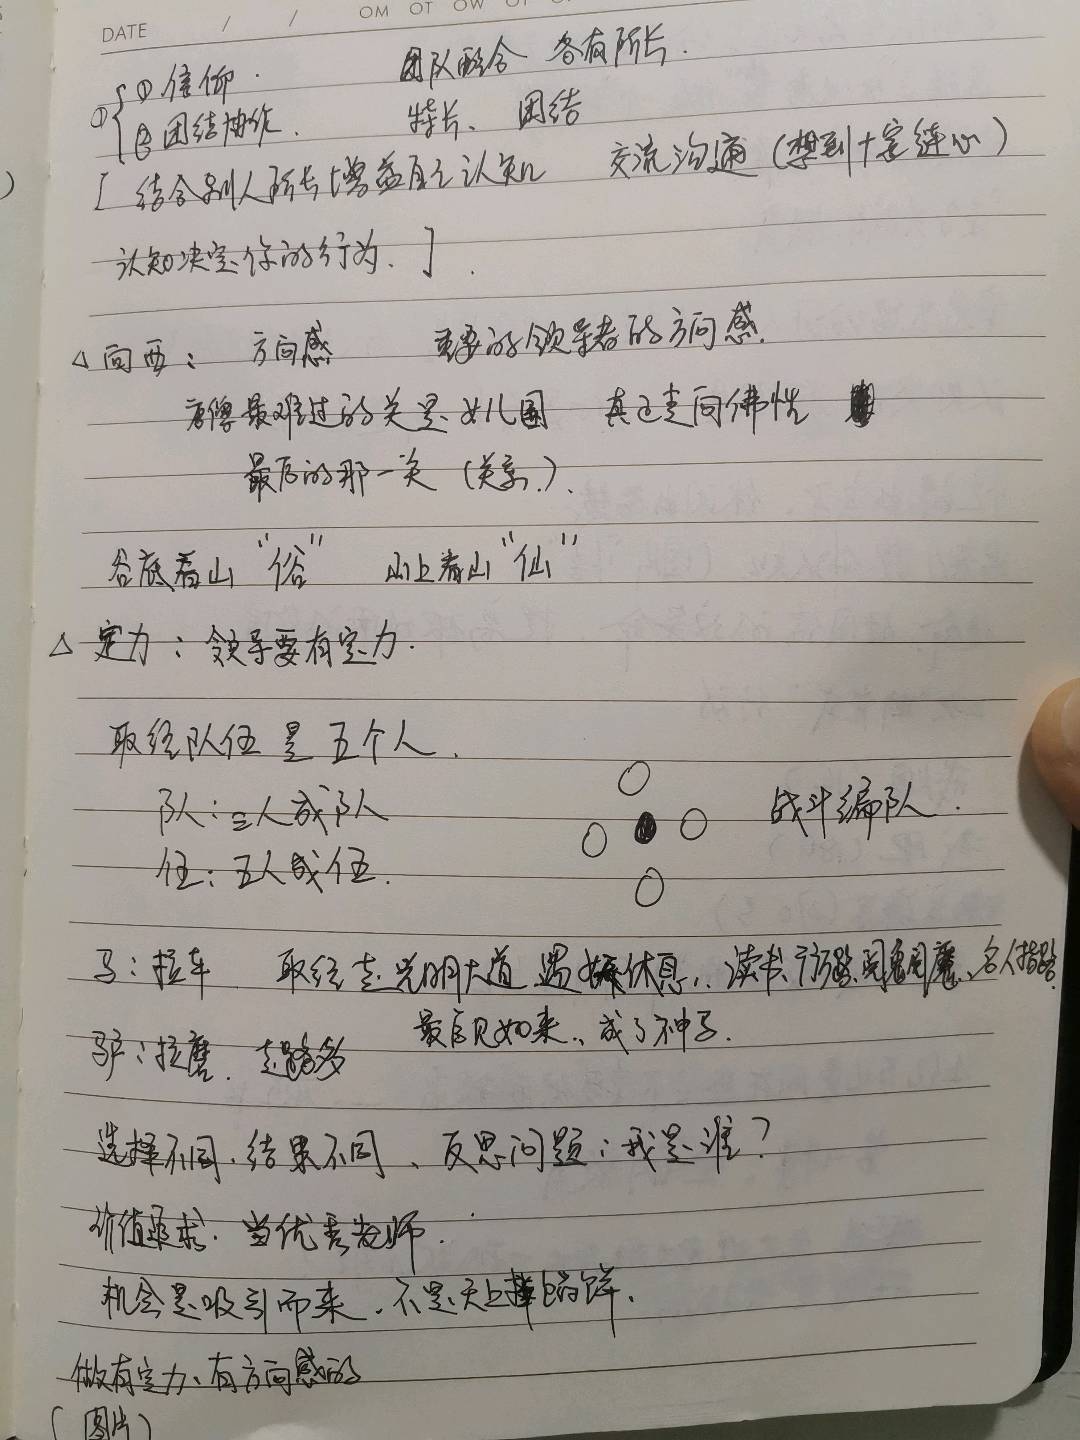 DATE / / OM OT OW
① ①信仰. 团队配合 各有所长.
②团结协作. 特长、团结
[结合别人所长增益自己认知 交流沟通(想到十字连心)
认知决定你的行为.].
△向西: 方向感 重要的领导者的方向感.
唐僧最难过的关是女儿国 真正走向佛性
最后的那一关(关系.).
谷底看山“俗” 山上看山“仙”
△定力:领导要有定力.
取经队伍是五个人.
队:三人成队
伍:五人成伍. 战斗编队.
马:拉车 取经走光明大道 遇 休息, 读书、行路、阅鬼阅魔、名人指路.
驴:拉磨. 走路多 最后见如来, 成了神马.
选择不同.结果不同、反思问题:我是谁?
价值追求.当优秀老师.
机会是吸引而来.不是天上掉馅饼.
做有定力、有方向感的
(图片)